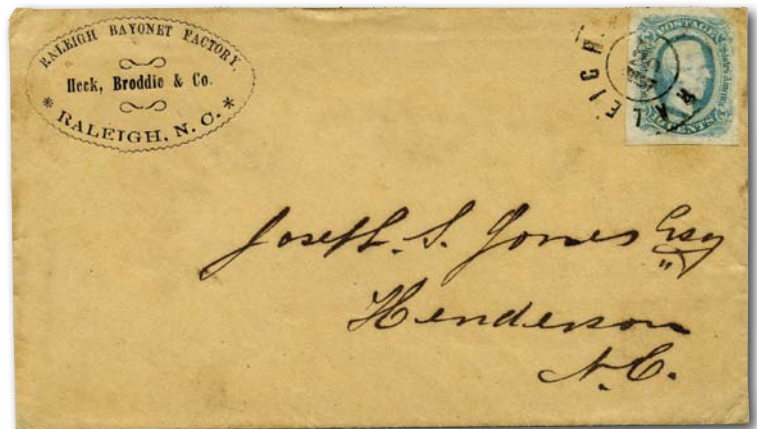 RALEIGH BAYONET FACTORY.
Heck, Broddie & Co.
* RALEIGH, N. C. *
RALEIGH.
POSTAGE
CENTS
Joseph. S. Jones Esq
Henderson
N.C.